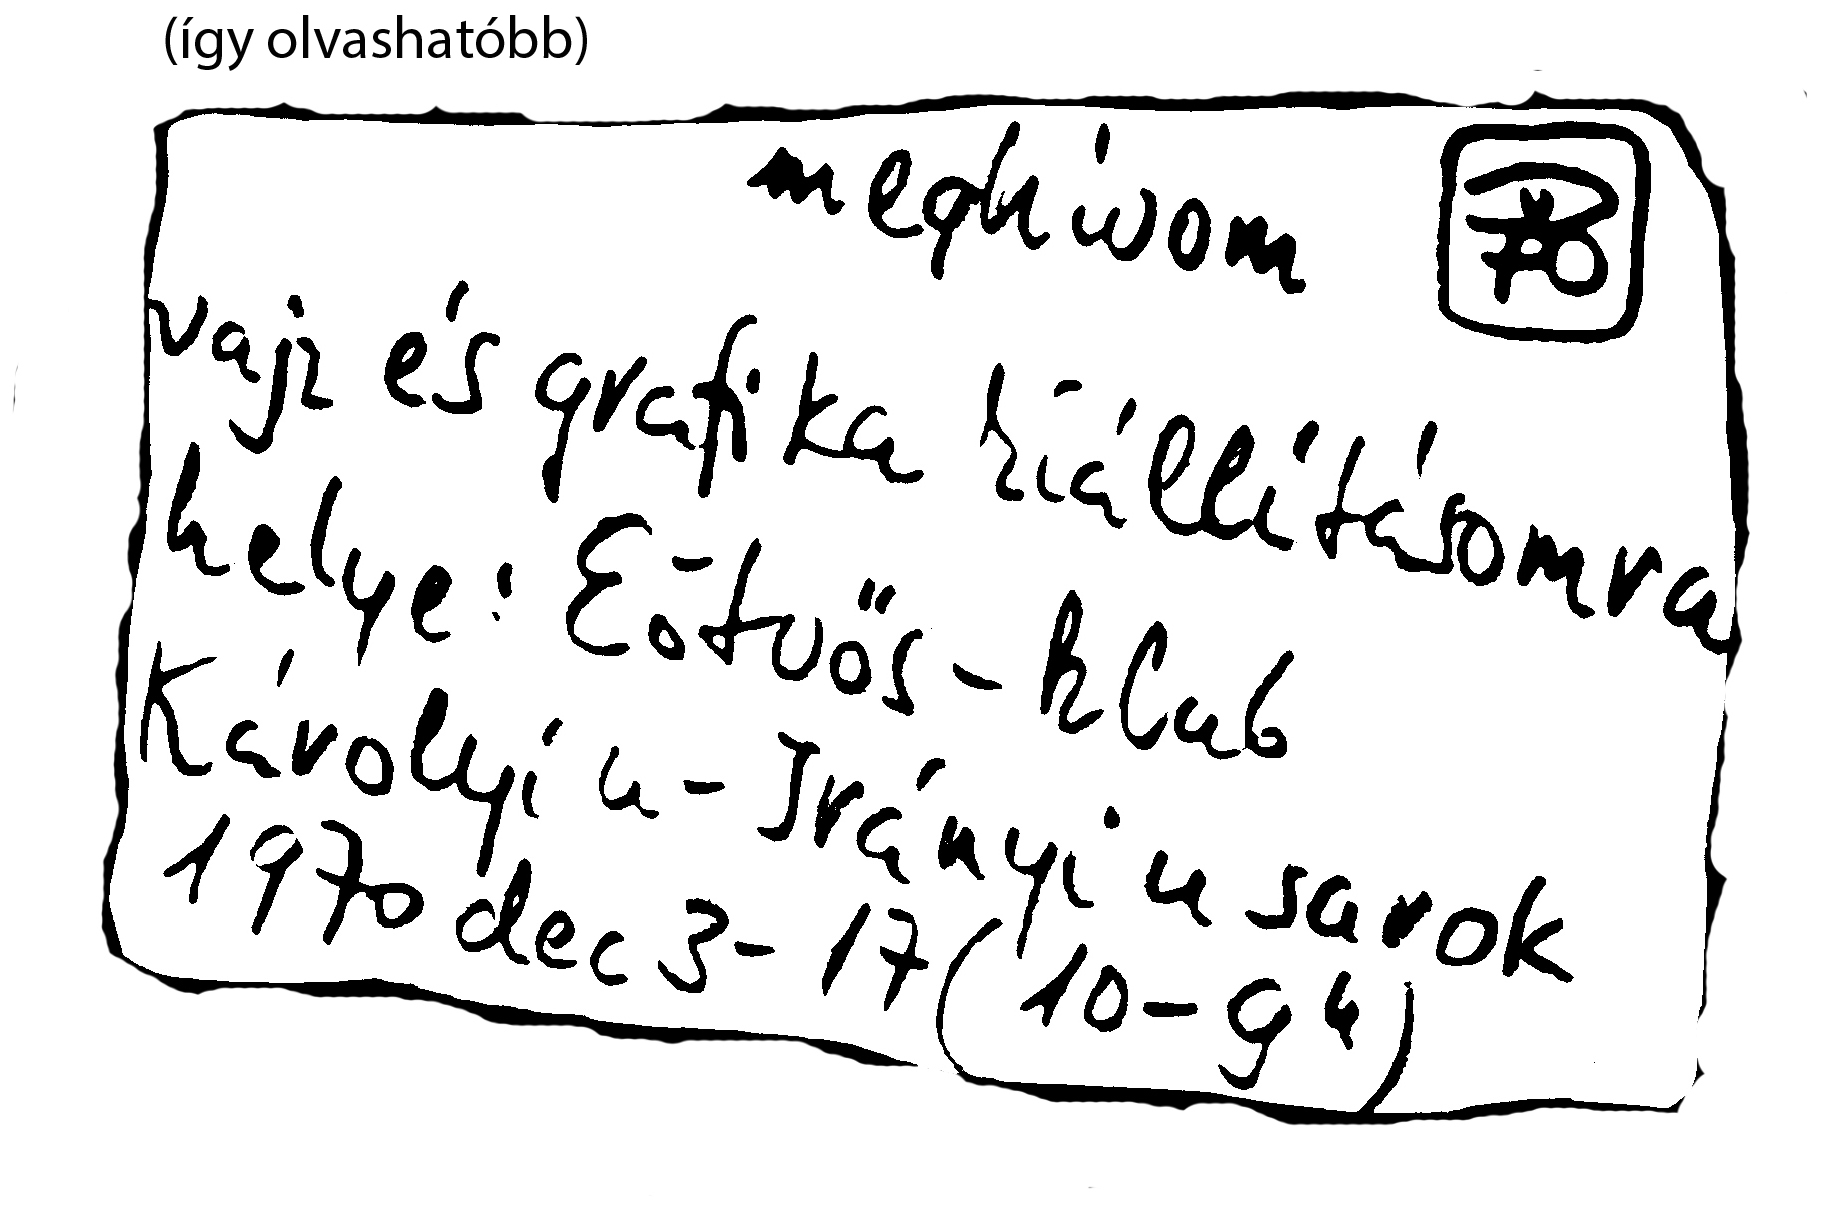 (így olvashatóbb)
meghívom
rajz és grafika kiállításomra
helye: Eötvös-klub
Károlyi u-Irányi u sarok
1970 dec 3-17 (10-9ʰ)